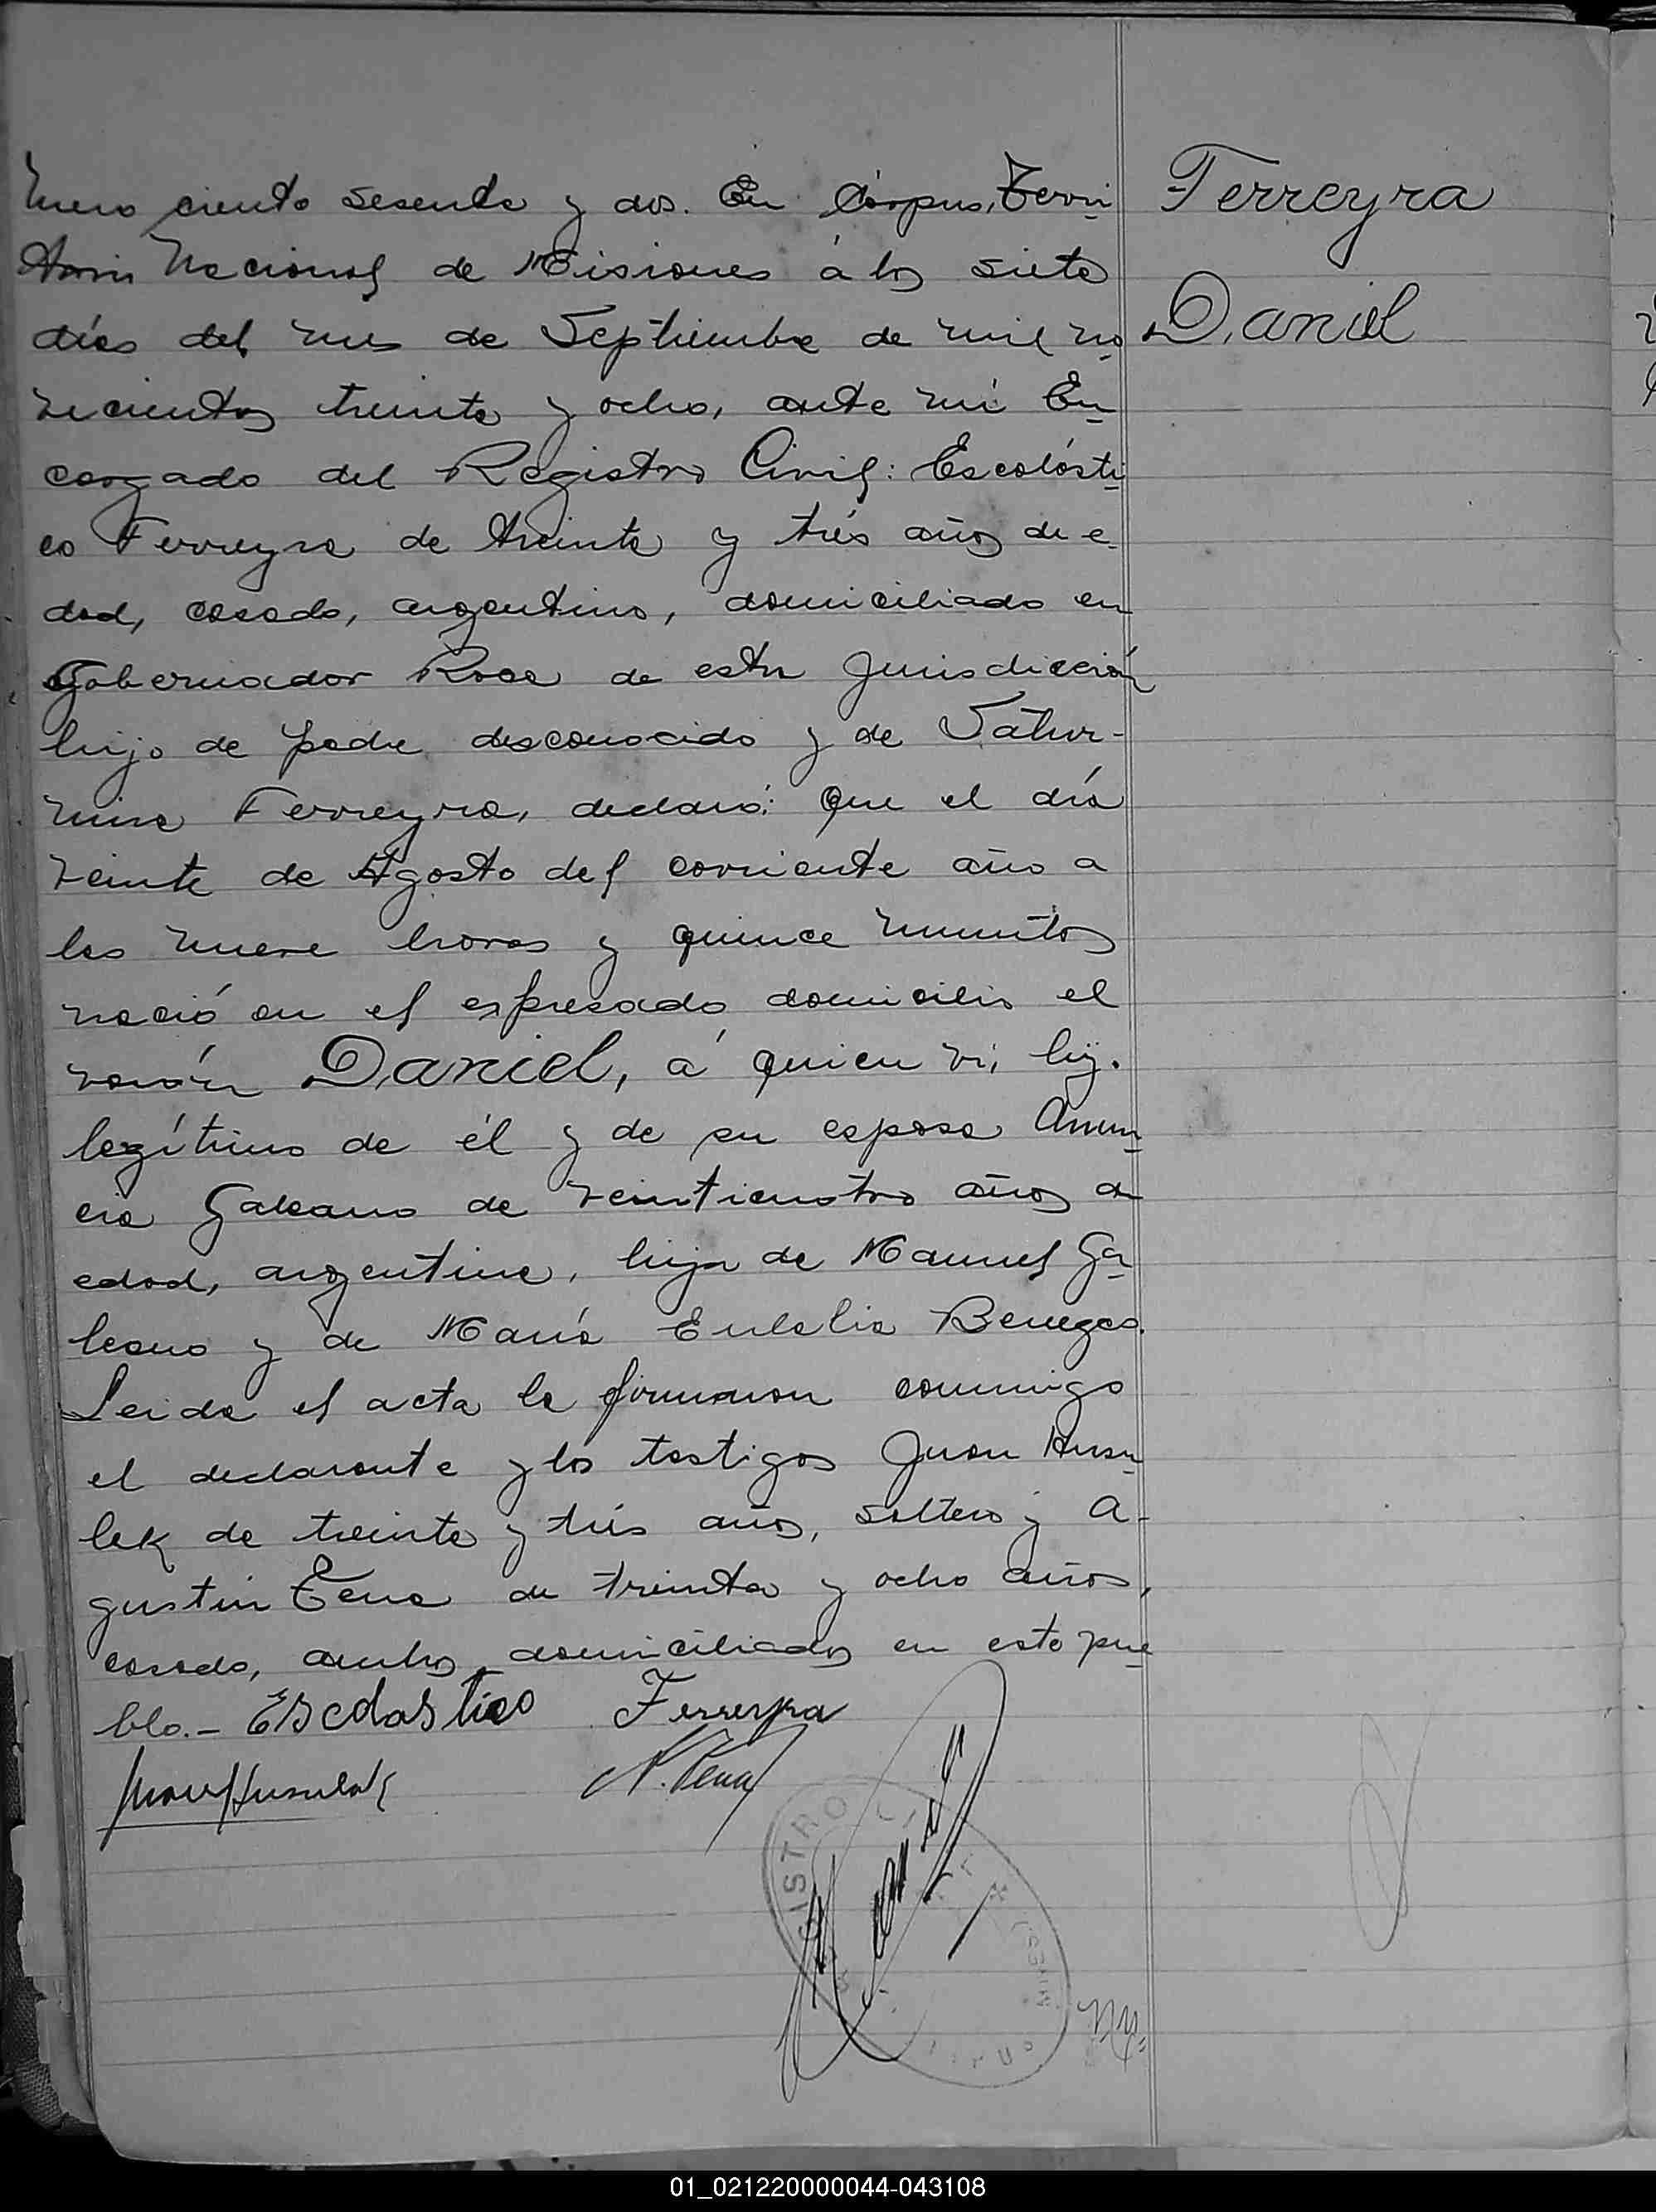 Número ciento sesenta y dos. En Córpus, Terri
torio Nacional de Misiones á los siete
días del mes de Septiembre de mil no
vecientos treinta y ocho, ante mí En
cargado del Registro Civil: Escolásti
co Ferreyra de treinta y trés años de e
dad, casado, argentino, domiciliado en
Gobernador Roca de esta Jurisdicción
hijo de padre desconocido y de Satur-
nina Ferreyra, declaró: Que el día
veinte de Agosto del corriente año a
las nueve horas y quince minutos
nació en el espresado domicilio el
varón Daniel, á quien vi, hij.
legítimo de él y de su esposa Anun
cia Galeano de veinticuatro años de
edad, argentina, hija de Manuel Ga
leano y de María Eulalia Benegas.
Leida el acta la firmaron conmigo
el declarante y los testigos Juan Husu
lak de treinta y trés años, soltero y A-
gustín Tena de treinta y ocho años,
casado, ambos domiciliados en este pue
blo.- Escolastico Ferreyra
Juan Husulak A. Tena
Ferreyra
Daniel
REGISTRO CIVIL
01_021220000044-043108